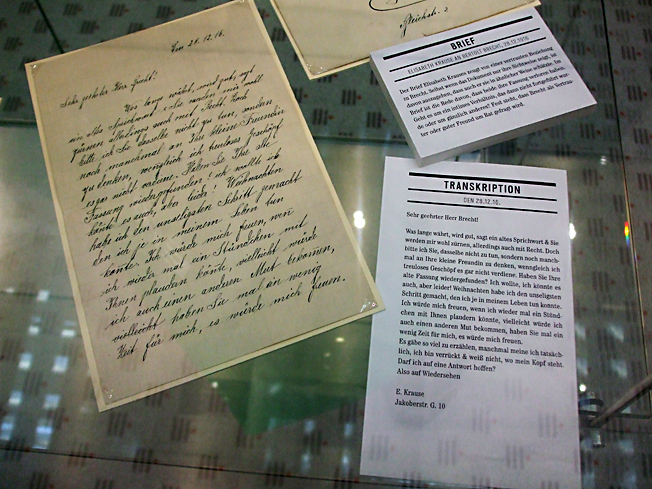 28.12.16.
Sehr geehrter Herr Brecht!
Was lang währt, wird gut, sagt
ein altes Sprichwort & Sie werden mir wohl
zürnen allerdings auch mit Recht. Doch
bitte ich Sie dasselbe nicht zu tun, sondern
noch manchmal an Ihre kleine Freundin
zu denken, wenngleich ich treuloses Geschöpf
es gar nicht verdiene. Haben Sie Ihre alte
Fassung wiedergefunden? Ich wollte ich
könte es auch, aber leider! Weihnachten
habe ich den unseligsten Schritt gemacht
den ich je in meinem Leben tun
konte. Ich würde mich freuen, wen
ich wieder mal ein Stündchen mit
Ihnen plaudern könte, vielleicht würde
ich auch einen anderen Mut bekomen,
vielleicht haben Sie mal ein wenig
Zeit für mich, es würde mich freuen.
Bleichstr. 2
BRIEF
ELISABETH KRAUSE AN BERTOLT BRECHT, 28.12.1916
Der Brief Elisabeth Krauses zeugt von einer vertrauten Beziehung
zu Brecht. Selbst wenn das Dokument nur ihre Sichtweise zeigt, ist
davon auszugehen, dass auch er sie in ähnlicher Weise schätzte. Im
Brief ist die Rede davon, dass beide ihre Fassung verloren haben.
Geht es um ein intimes Verhältnis, das dann nicht fortgeführt wur-
de oder um gänzlich anderes? Fest steht, dass Brecht als Vertrau-
ter oder guter Freund um Rat gefragt wird.
TRANSKRIPTION
DEN 28.12.10.
Sehr geehrter Herr Brecht!
Was lange währt, wird gut, sagt ein altes Sprichwort & Sie
werden mir wohl zürnen, allerdings auch mit Recht. Doch
bitte ich Sie, dasselbe nicht zu tun, sondern noch manch-
mal an Ihre kleine Freundin zu denken, wenngleich ich
treuloses Geschöpf es gar nicht verdiene. Haben Sie Ihre
alte Fassung wiedergefunden? Ich wollte, ich könnte es
auch, aber leider! Weihnachten habe ich den unseligsten
Schritt gemacht, den ich je in meinem Leben tun konnte.
Ich würde mich freuen, wenn ich wieder mal ein Stünd-
chen mit Ihnen plandern könnte, vielleicht würde ich
auch einen anderen Mut bekommen, haben Sie mal ein
wenig Zeit für mich, es würde mich freuen.
Es gäbe so viel zu erzählen, manchmal meine ich tatsäch-
lich, ich bin verrückt & weiß nicht, wo mein Kopf steht.
Darf ich auf eine Antwort hoffen?
Also auf Wiedersehen
E. Krause
Jakoberstr. G. 10